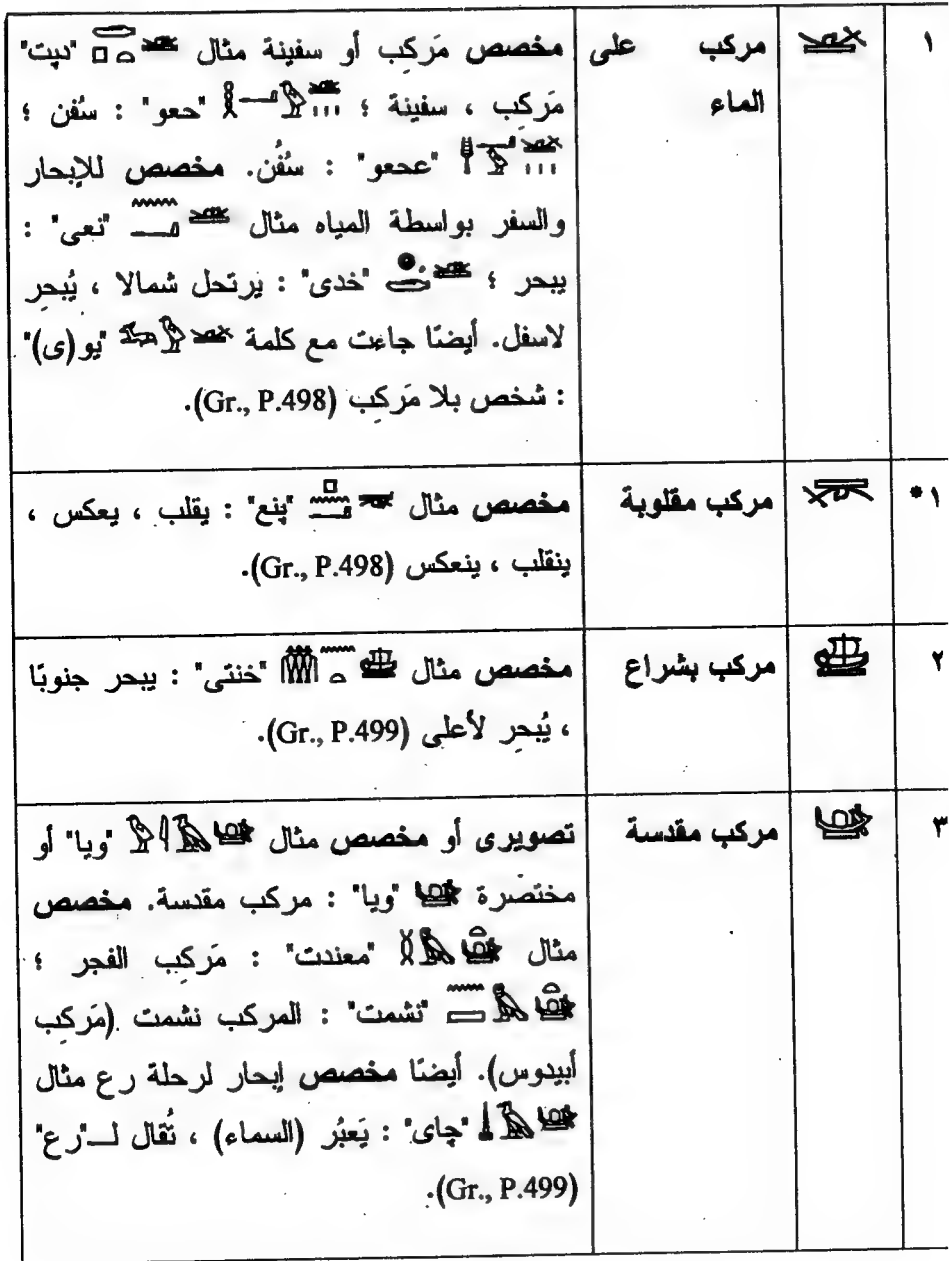 ١ مركب على الماء مخصص مَركِب أو سفينة مثال "دپت"
مَركِب ، سفينة ؛ "حعو" : سُفن ؛
"عحعو" : سُفُن. مخصص للإبحار
والسفر بواسطة المياه مثال "نعى" :
يبحر ؛ "خدى" : يَرتحل شمالا ، يُبحِر
لاسفل. أيضًا جاءت مع كلمة "يو(ى)"
: شخص بلا مَركِب (Gr., P.498).
١* مركب مقلوبة مخصص مثال "پنع" : يقلب ، يعكس ،
ينقلب ، ينعكس (Gr., P.498).
٢ مركب بشراع مخصص مثال "خنتى" : يبحر جنوبًا
، يُبحِر لأعلى (Gr., P.499).
٣ مركب مقدسة تصويرى أو مخصص مثال "ويا" أو
مختصرة "ويا" : مركب مقدسة. مخصص
مثال "معندت" : مَركِب الفجر ؛
"نشمت" : المركب نشمت (مَركِب
أبيدوس). أيضًا مخصص إبحار لرحلة رع مثال
"چاى" : يَعبُر (السماء) ، تُقال لـ"رع"
(Gr., P.499).